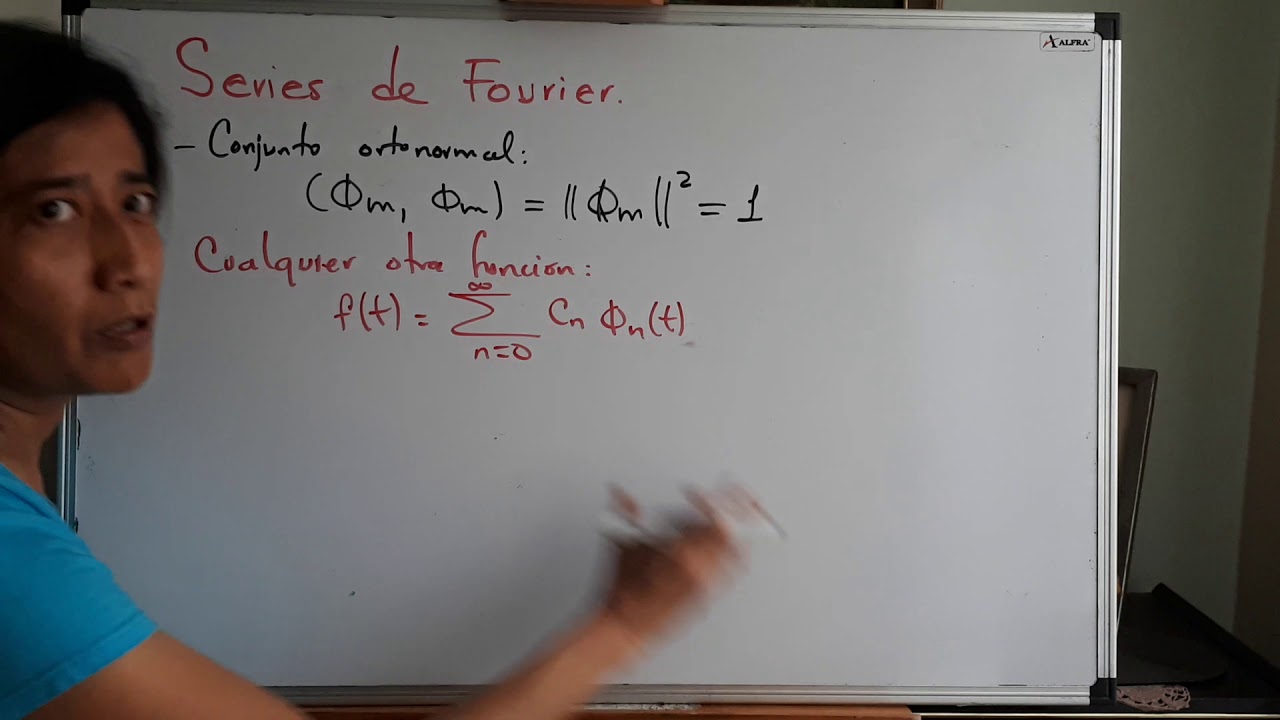 ALFRA
Series de Fourier.
- Conjunto ortonormal:
(Φm, Φm) = ||Φm||² = 1
Cualquier otra funcion:
f(t) = ∑_{n=0}^{∞} Cn Φn(t)